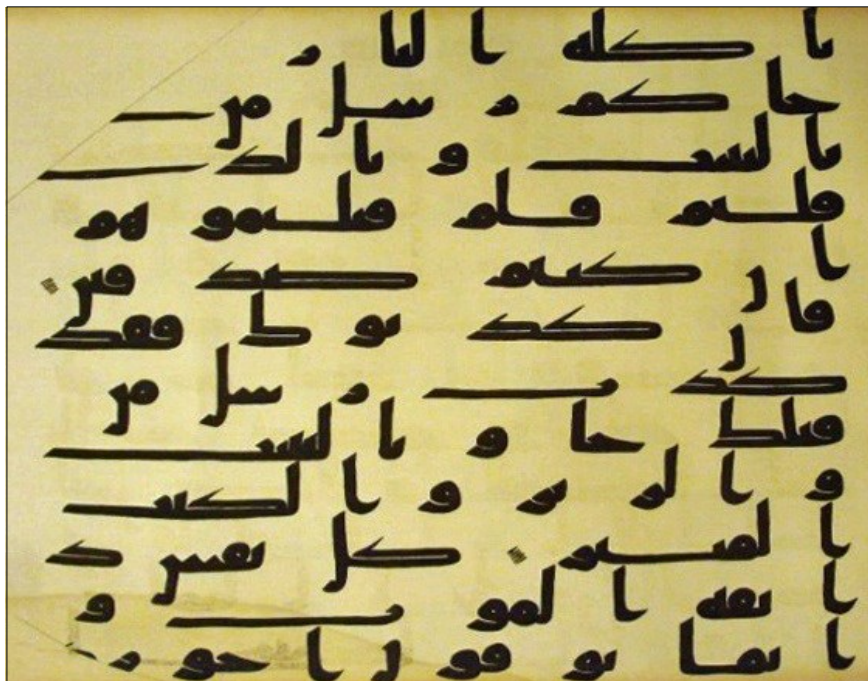 تاكله النار
جاكم رسل من
بالبينت وبالذى
قلتم فلم قتلتموهم
ان كنتم صدقين
فان كذبوك فقد
كذب رسل من
قبلك جاو بالبينت
والزبر والكتب
المنير كل نفس ذ
ائقه الموت و
انما توفون اجور